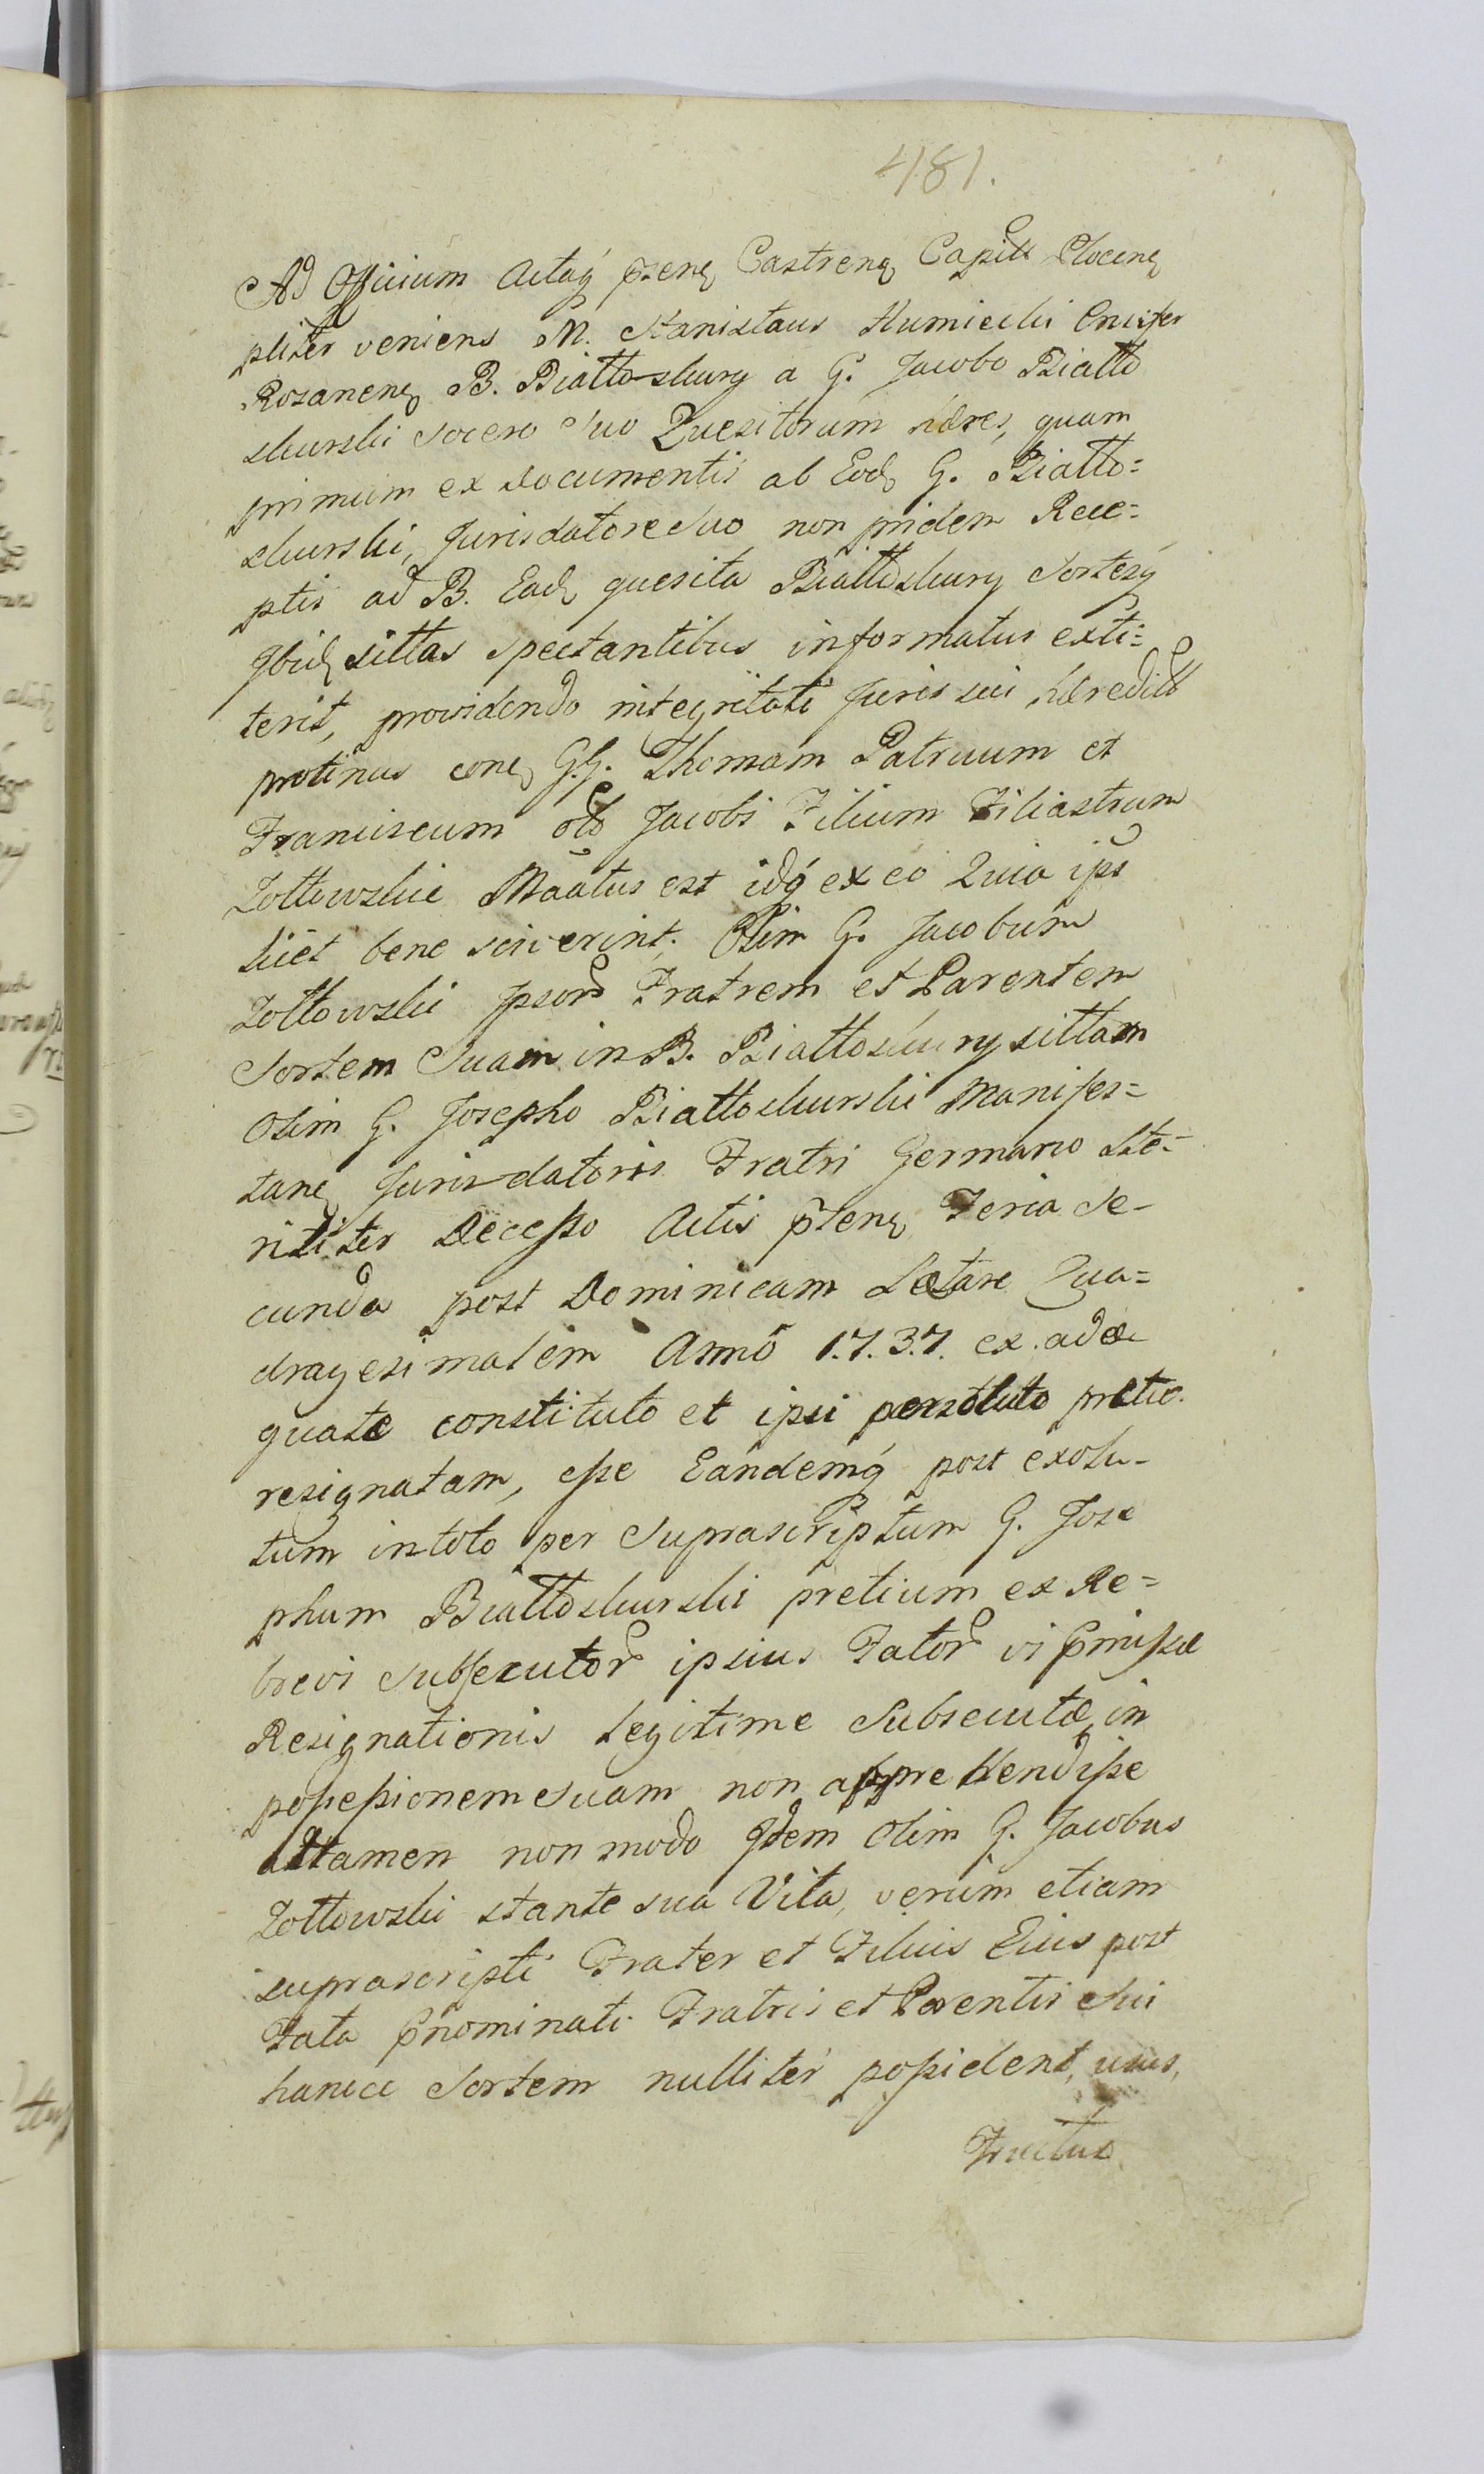 481.
Ad Officium Actaq́ pzenẽ Castrenẽ Capitł Plocenẽ
pliter veniens M. Stanislaus Humiecki Ensifer
Rozanenẽ B. Białło skury a G. Jacobo Białło
skurski Socero Suo Quesitorum hæres, quam
primum ex documentis ab Eodẽ G. Białło=
skurski, Jurisdatore Suo non pridem Rece=
ptis ad B. Eadẽ quesita Białłoskury Sortesq́
Ibidẽ sittas spectantibus informatus exti=
terit, providendo integritati Juris sui hæreditł
protinus conẽ G.G. Thomam Patruum et
Franciscum olb Jacobi Filium Filiastrum
Zołtowskie Mãatus est idq́ ex eo Quia ipś
licet bene sciverint; Olim G. Jacobum
Zołtowski Ipsorũ Fratrem et Parentem
Sortem Suam in B. Białłoskury sittam
Olim G. Josepho Białłoskurski Manifes=
tanẽ Juris datoris Fratri Germano Ste-
riliter Decesso Actis p̃tenẽ Feria Se-
cunda post Dominicam Lætare Qua=
dragesimalem Annõ 1.7.3.7. ex. adæ
quate constituto et ipsi persoluto pretio.
resignatam, esse Eandemq́ post exolu-
tum in toto per Suprascriptum G. Jose
phum Białłoskurski pretium ex Re=
brevi Subsecutorũ ipsius Fatorũ vi p̃missæ
Resignationis legitime Subsecutæ in
possessionem suam non apprehendisse
attamen non modo Idem Olim G. Jacobus
Zołtowski stante sua Vita, verum etiam
suprascripti Frater et Filius Eius post
Fata p̃nominati Fratris et Parentis sui
hancce Sortem nulliter possident, usus,
Fructus